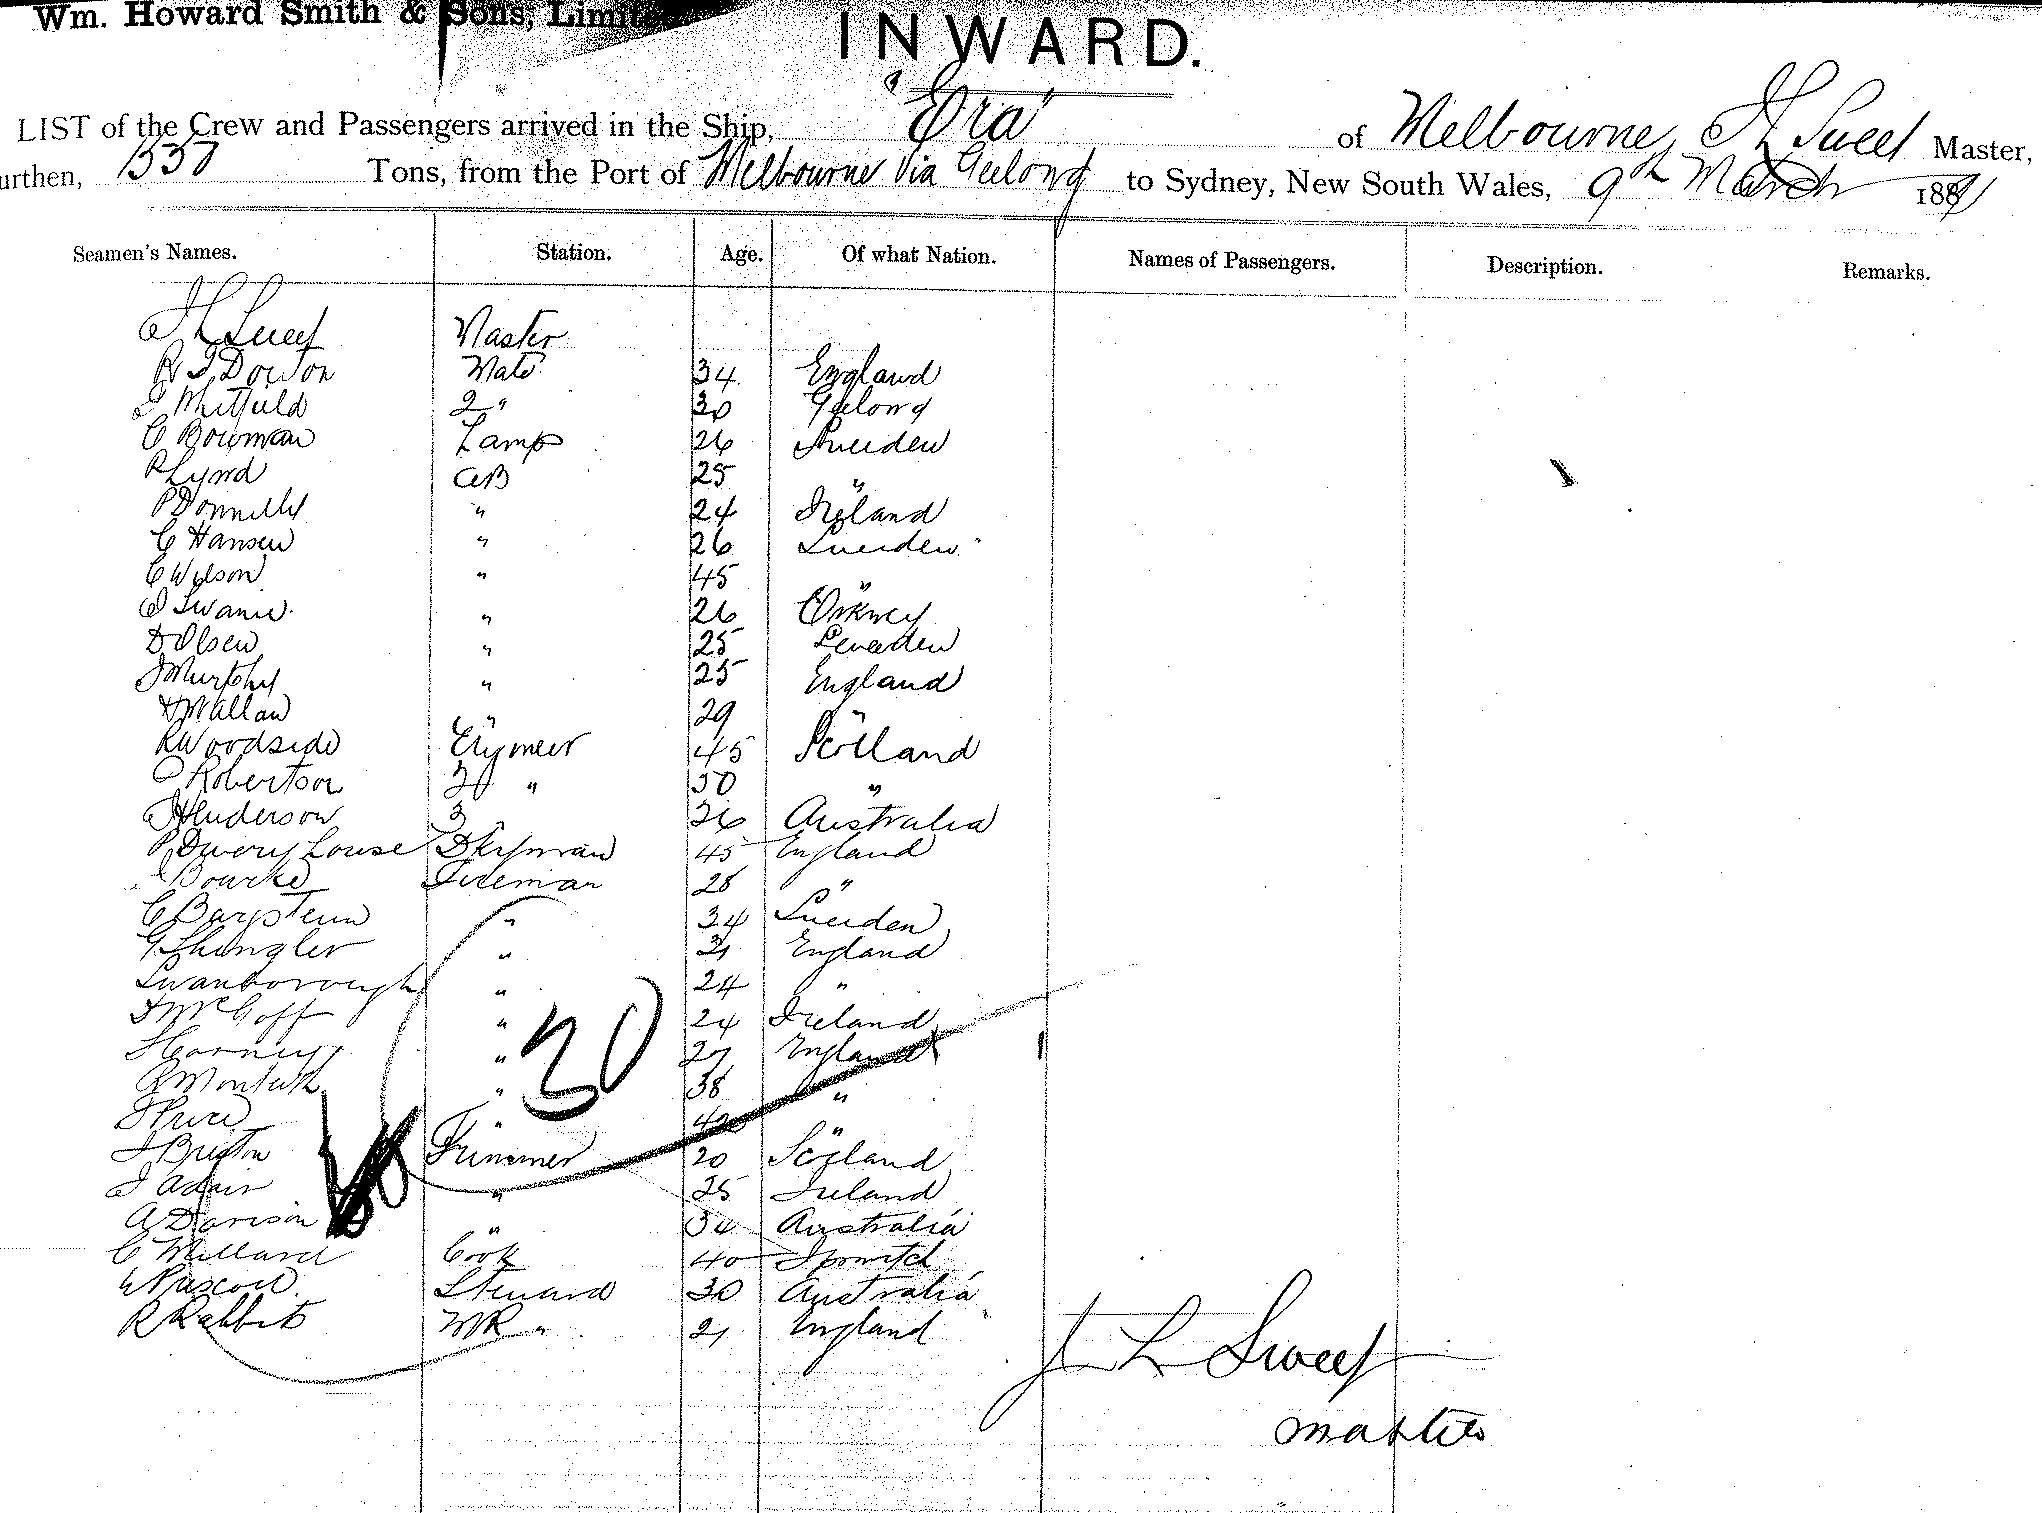 Wm. Howard Smith & Sons, Limited
INWARD.
LIST of the Crew and Passengers arrived in the Ship, "Era" of Melbourne, J L Sweet Master,
urthen, 1330 Tons, from the Port of Melbourne via Geelong to Sydney, New South Wales, 9th March 1889
Seamen's Names. Station. Age. Of what Nation. Names of Passengers. Description. Remarks.
J L Sweet Master
R J Dowton Mate 34 England
J Whitfield 2 " 30 Geelong
C Bowman Lamp 26 Sweden
P Lynd AB 25 "
P Donnelly " 24 Ireland
C Hansen " 26 Sweden
C Wilson " 45 "
J Swanie " 26 Orkney
D Olsen " 25 Sweden
J Murphy " 25 England
H Mallan " 29 "
R Woodside Engineer 45 Scotland
P Robertson 2 " 30 "
J Henderson 3 " 26 Australia
P Dwery House Dkyman 45 England
J Bourke Fireman 28 "
C Baysteun " 34 Sweden
G Shingler " 31 England
Swanborough " 24 "
J McGoff " 24 Ireland
J Carney " 27 England
R Monteith " 38 "
J Price " 42 "
J Briston Trimmer 20 Scotland
J Adair " 25 Ireland
A Davison " 34 Australia
C Millard Cook 40 Ipswitch
W Pascoe Steward 30 Australia
R Rabbits MR " 21 England
30
J L Sweet
Master